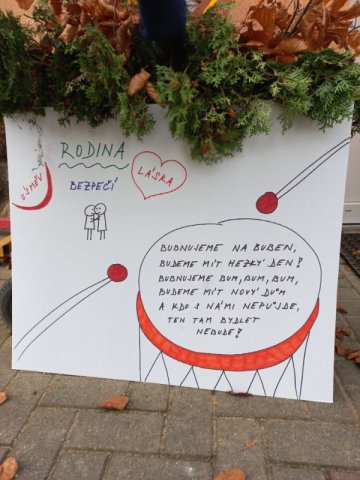 RODINA
LÁSKA
ÚSMĚV
BEZPEČÍ
BUBNUJEME NA BUBEN,
BUDEME MÍT HEZKÝ DEN!
BUBNUJEME BUM, BUM, BUM,
BUDEME MÍT NOVÝ DŮM
A KDO S NÁMI NEPŮJDE,
TEN TAM BYDLET
NEBUDE!